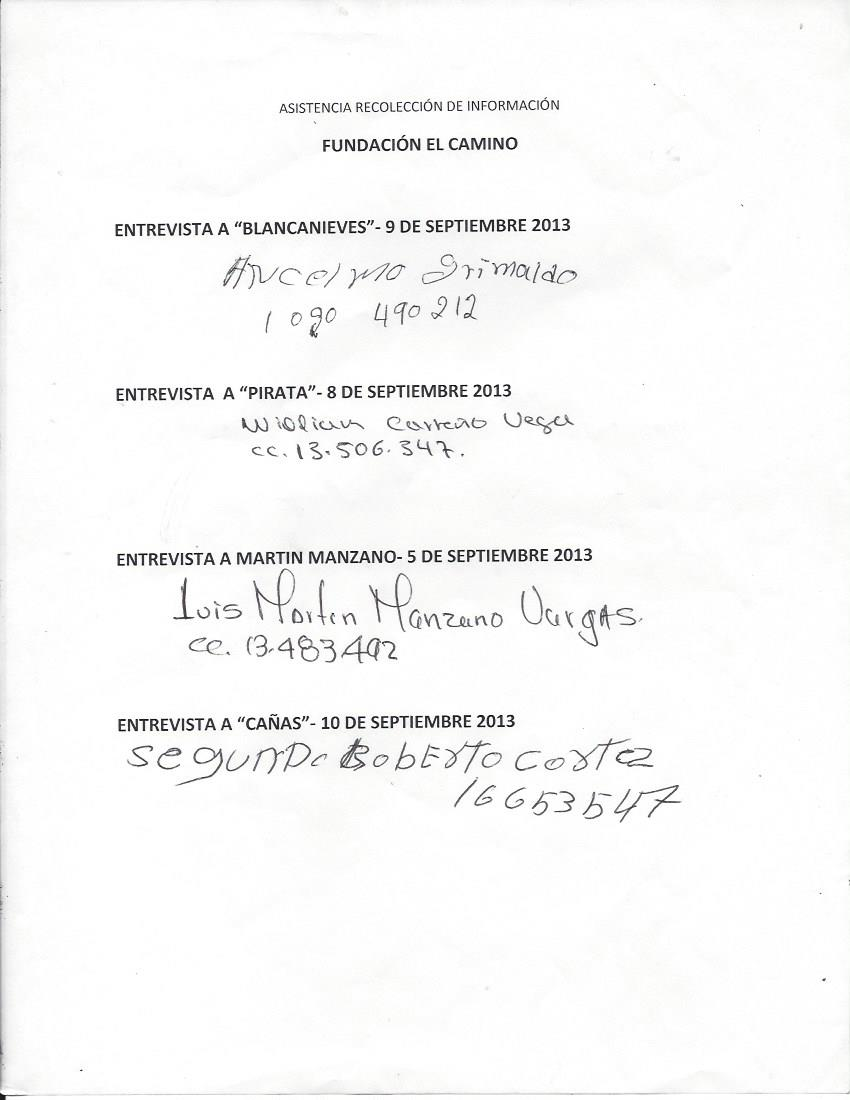 ASISTENCIA RECOLECCIÓN DE INFORMACIÓN
FUNDACIÓN EL CAMINO
ENTREVISTA A “BLANCANIEVES”- 9 DE SEPTIEMBRE 2013
ANCelmo Grimaldo
1 090 490 212
ENTREVISTA A “PIRATA”- 8 DE SEPTIEMBRE 2013
William Carreño Vega
cc. 13.506.347.
ENTREVISTA A MARTIN MANZANO- 5 DE SEPTIEMBRE 2013
Luis Martin Manzano VargAS.
cc. 13.483492
ENTREVISTA A “CAÑAS”- 10 DE SEPTIEMBRE 2013
SegUNDo RobERTo CorTez
16653547